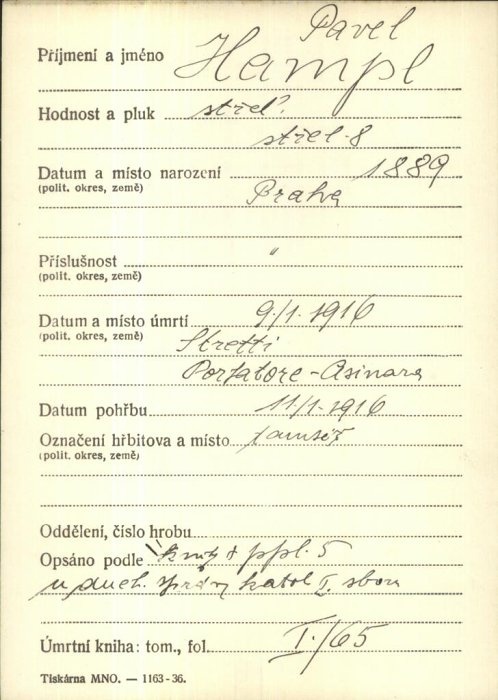 Pavel
Příjmení a jméno Hampl
Hodnost a pluk střel.
střel. 8
Datum a místo narození 1889
(polit. okres, země) Praha
Příslušnost "
(polit. okres, země)
Datum a místo úmrtí 9./1. 1916
(polit. okres, země) Stretti
Portatore - Asinara
Datum pohřbu 11/1. 1916
Označení hřbitova a místo tamtéž
(polit. okres, země)
Oddělení, číslo hrobu
Opsáno podle knihy † ppl. 5
u duch. správy katol. I. sboru
Úmrtní kniha: tom., fol. I./65
Tiskárna MNO. — 1163-36.